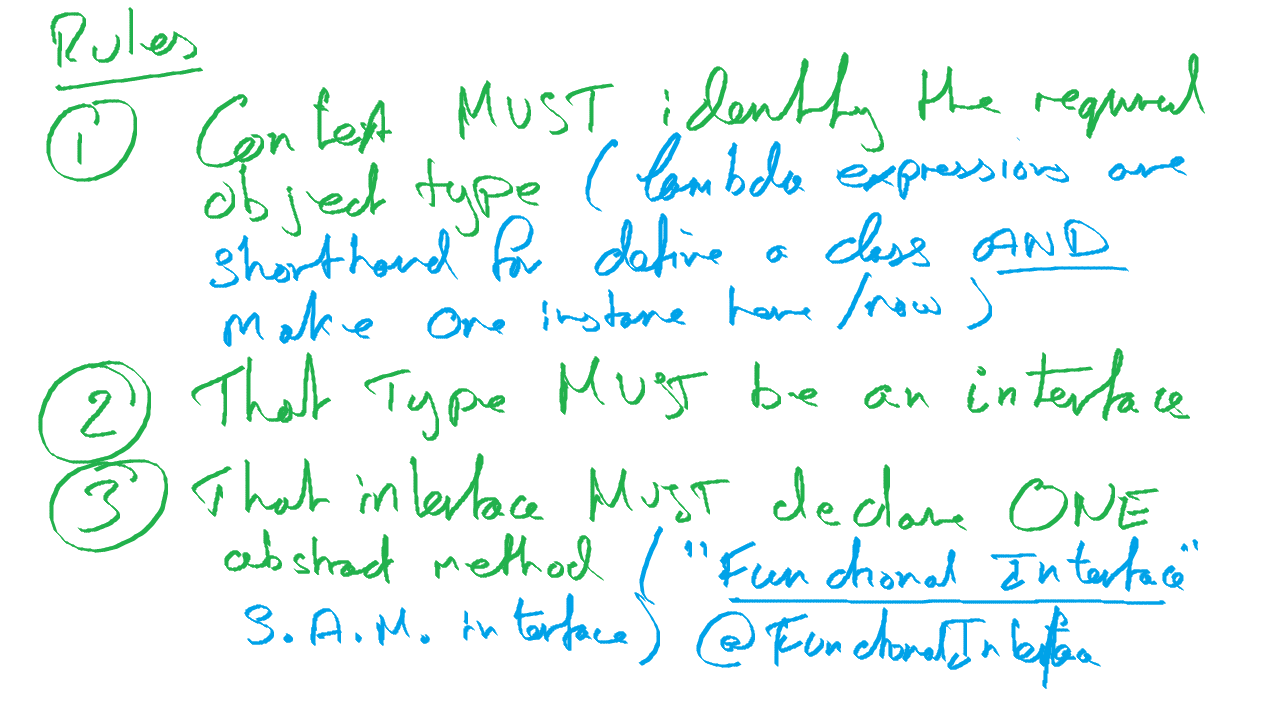 Rules
① Context MUST identify the required
object type (lambda expressions are
shorthand for define a class AND
make one instance here/now)
② That Type MUST be an interface
③ That interface MUST declare ONE
abstract method ("Functional Interface"
S.A.M. interface) @FunctionalInterface